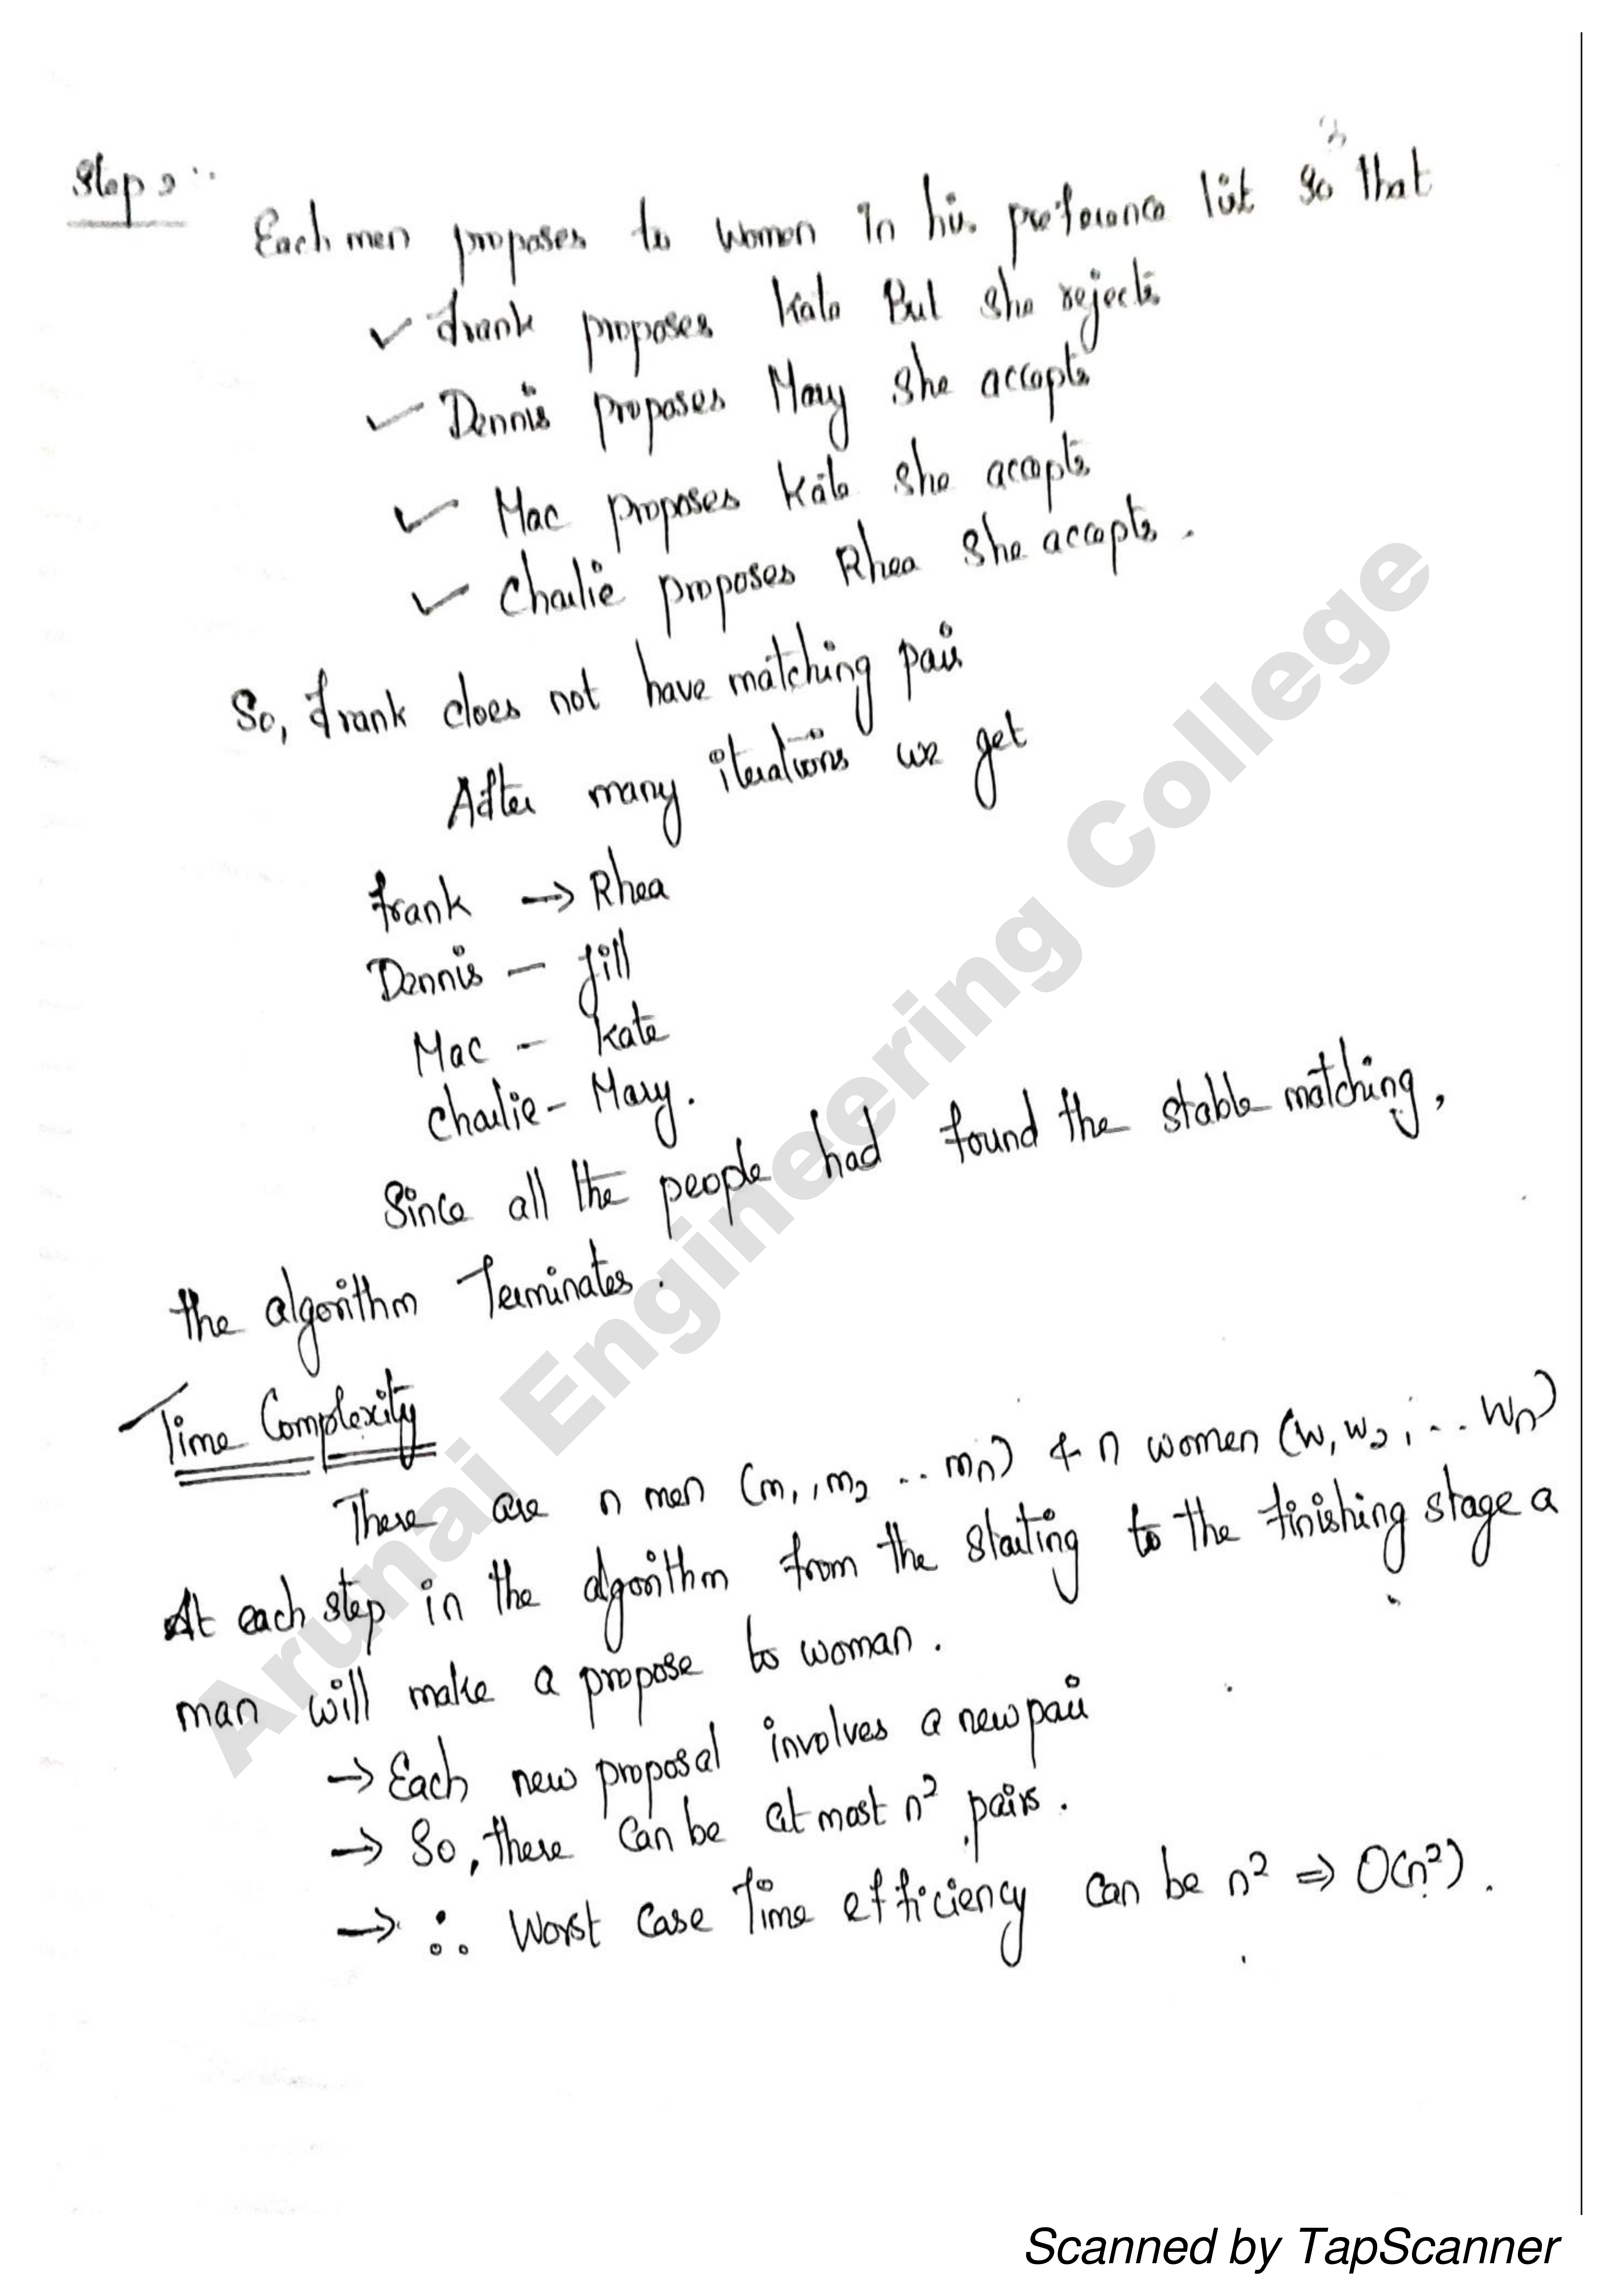 Step 2:
Each men proposes to women in his preference list so that
✓ Frank proposes Kate But she rejects
✓ Dennis proposes Mary she accepts
✓ Mac proposes Kate she accepts
✓ Charlie proposes Rhea she accepts.
So, Frank does not have matching pair
After many iterations we get
Frank → Rhea
Dennis - Jill
Mac - Kate
Charlie - Mary.
Since all the people had found the stable matching,
the algorithm Terminates.
Time Complexity
There are n men (m1, m2 .. mn) & n women (w1 w2, ... wn)
At each step in the algorithm from the starting to the finishing stage a
man will make a propose to woman.
→ Each new proposal involves a new pair
→ So, there can be at most n² pairs.
→ ∴ Worst case Time efficiency can be n² ⇒ O(n²).
Arunai Engineering College
Scanned by TapScanner